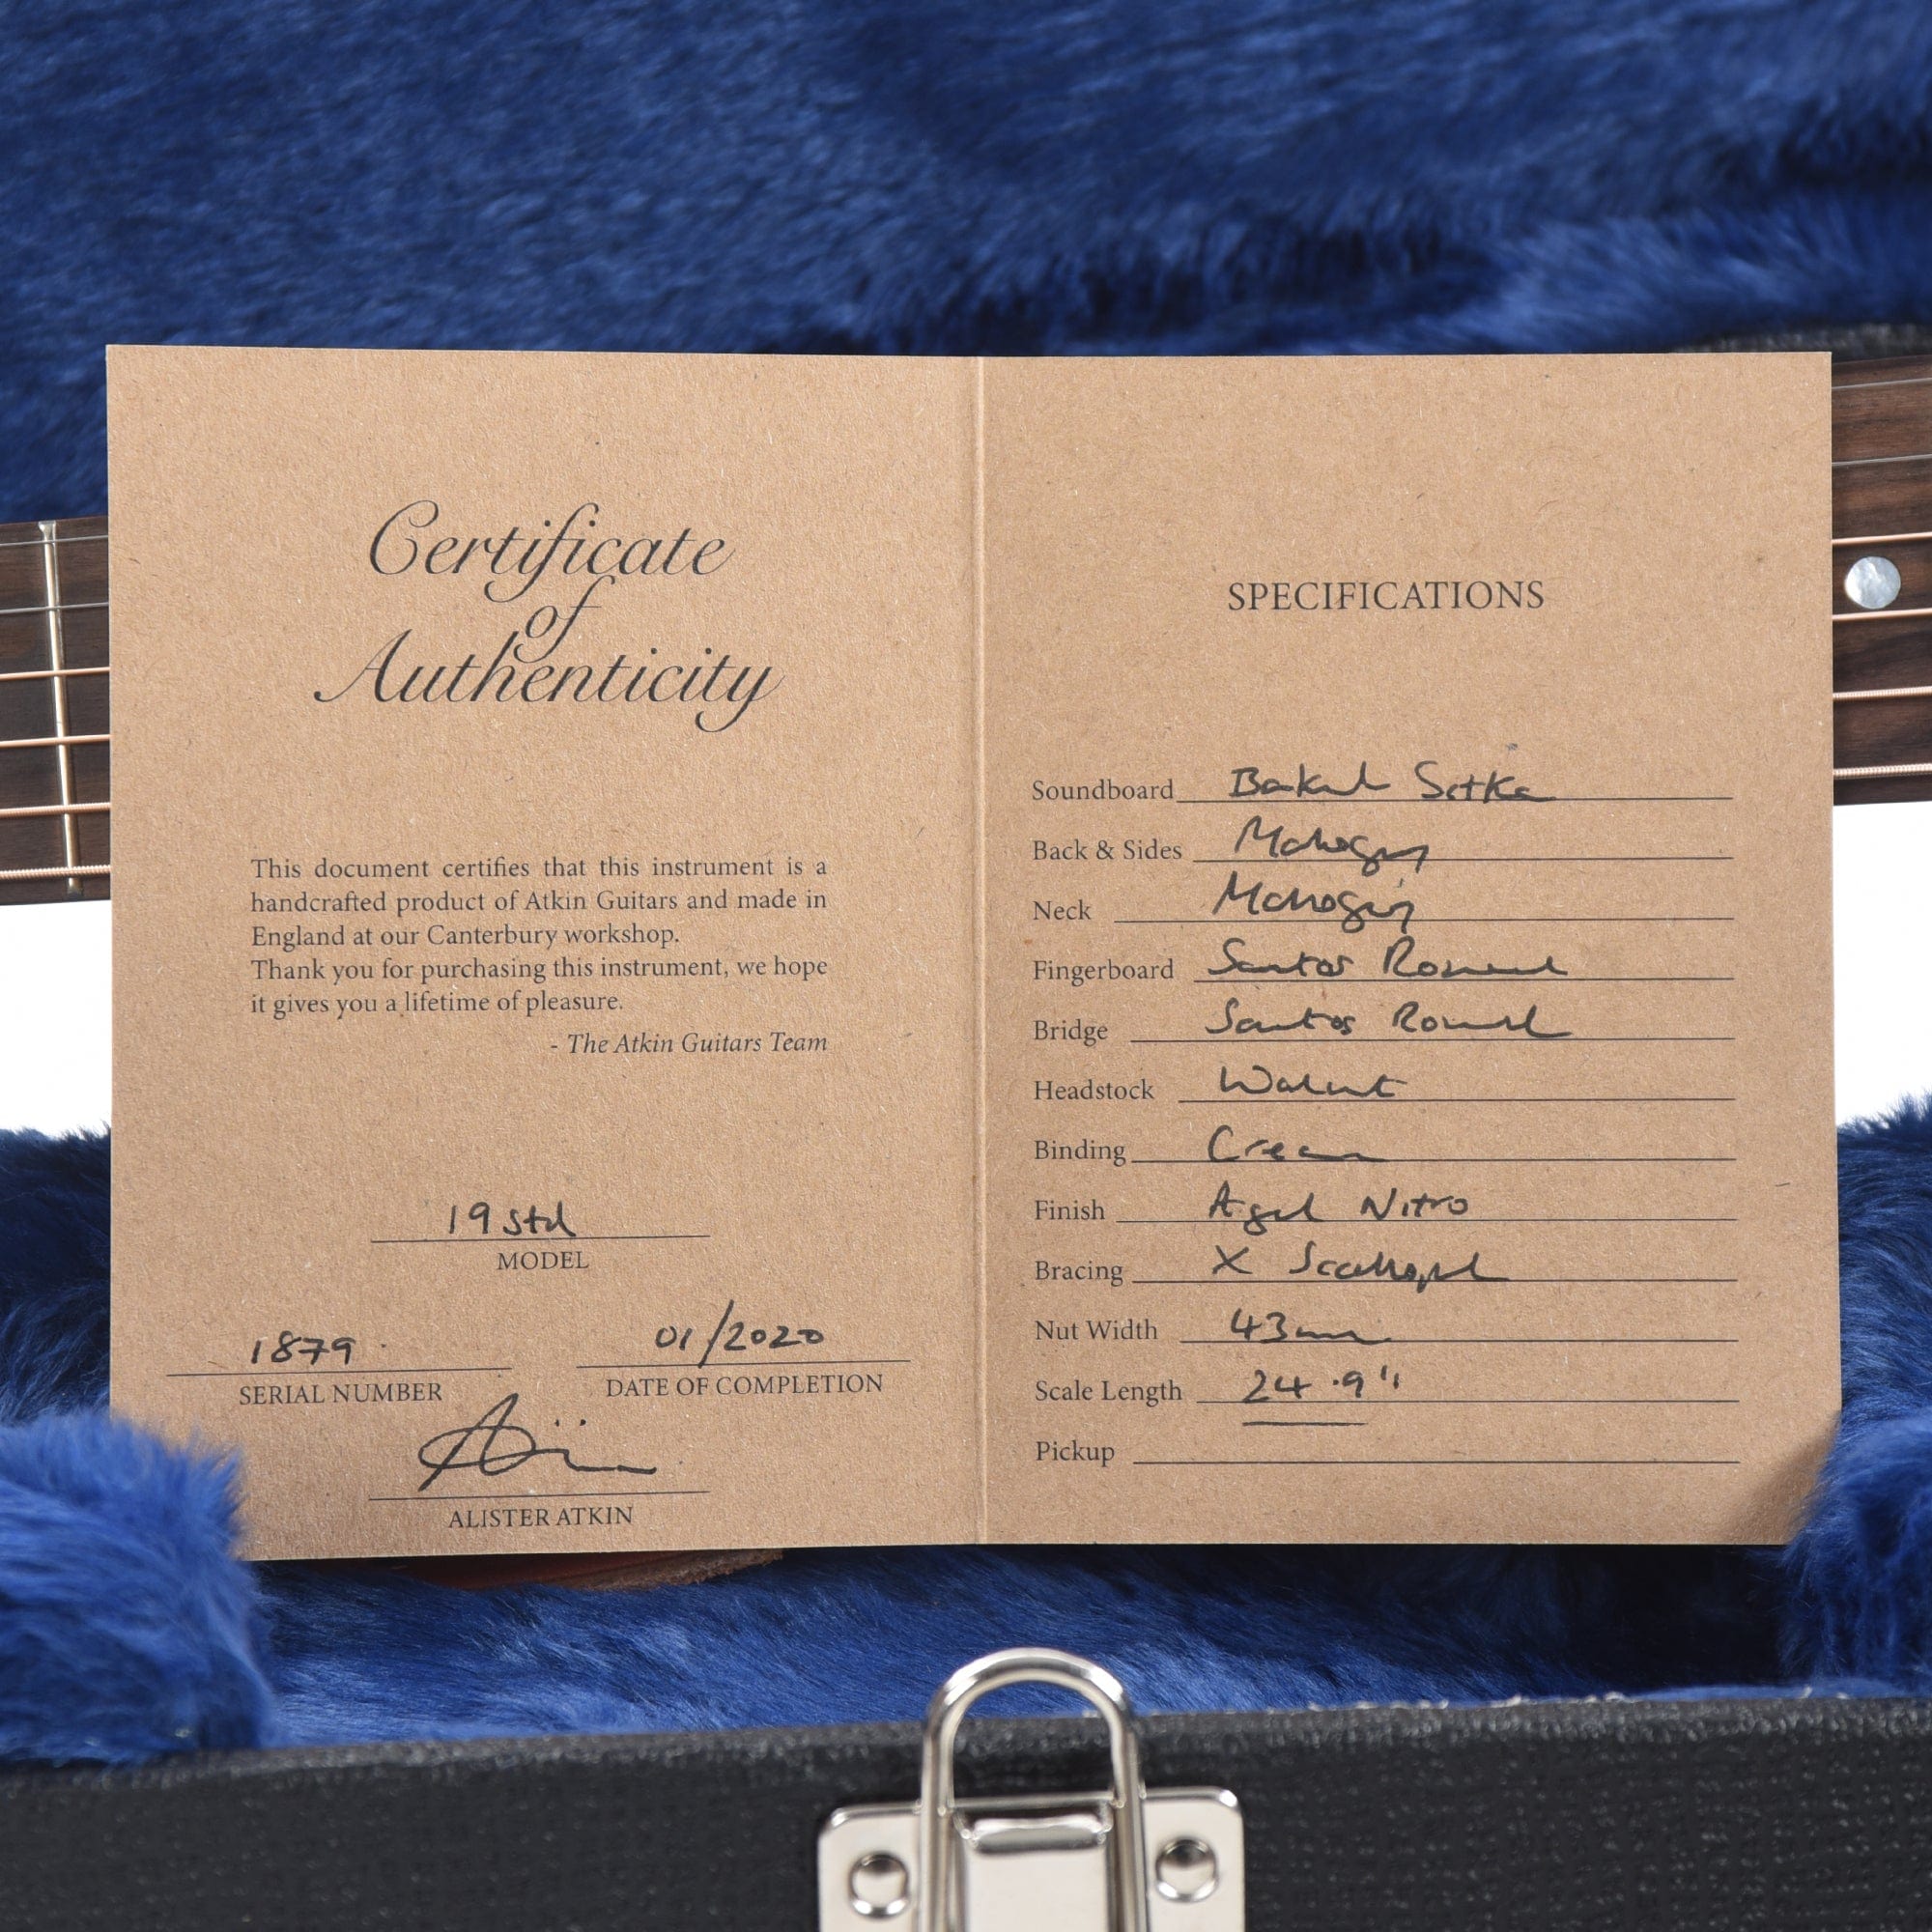 Certificate
of
Authenticity
This document certifies that this instrument is a
handcrafted product of Atkin Guitars and made in
England at our Canterbury workshop.
Thank you for purchasing this instrument, we hope
it gives you a lifetime of pleasure.
- The Atkin Guitars Team
19 Std
MODEL
1879
SERIAL NUMBER
01/2020
DATE OF COMPLETION
ALISTER ATKIN
SPECIFICATIONS
Soundboard Baked Sitka
Back & Sides Mahogany
Neck Mahogany
Fingerboard Santos Rosewood
Bridge Santos Rosewood
Headstock Walnut
Binding Cream
Finish Aged Nitro
Bracing X Scalloped
Nut Width 43mm
Scale Length 24.9"
Pickup